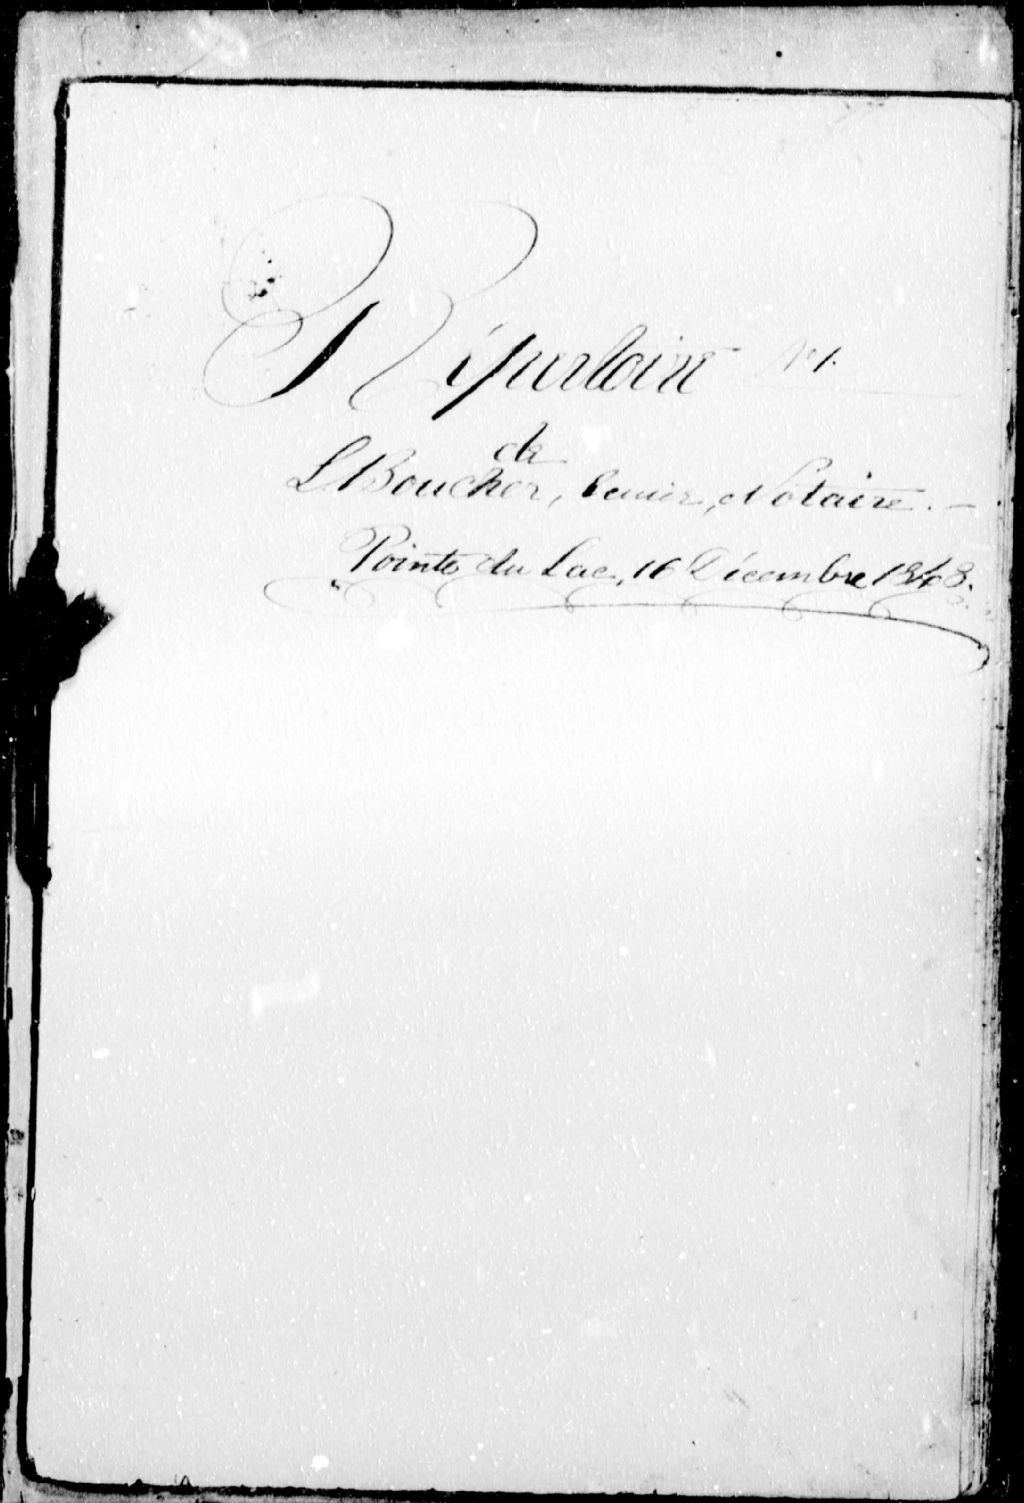 Répertoire No 1.
de
L Boucher, Ecuier, Notaire. –
Pointe du Lac, 16 Décembre 1848.